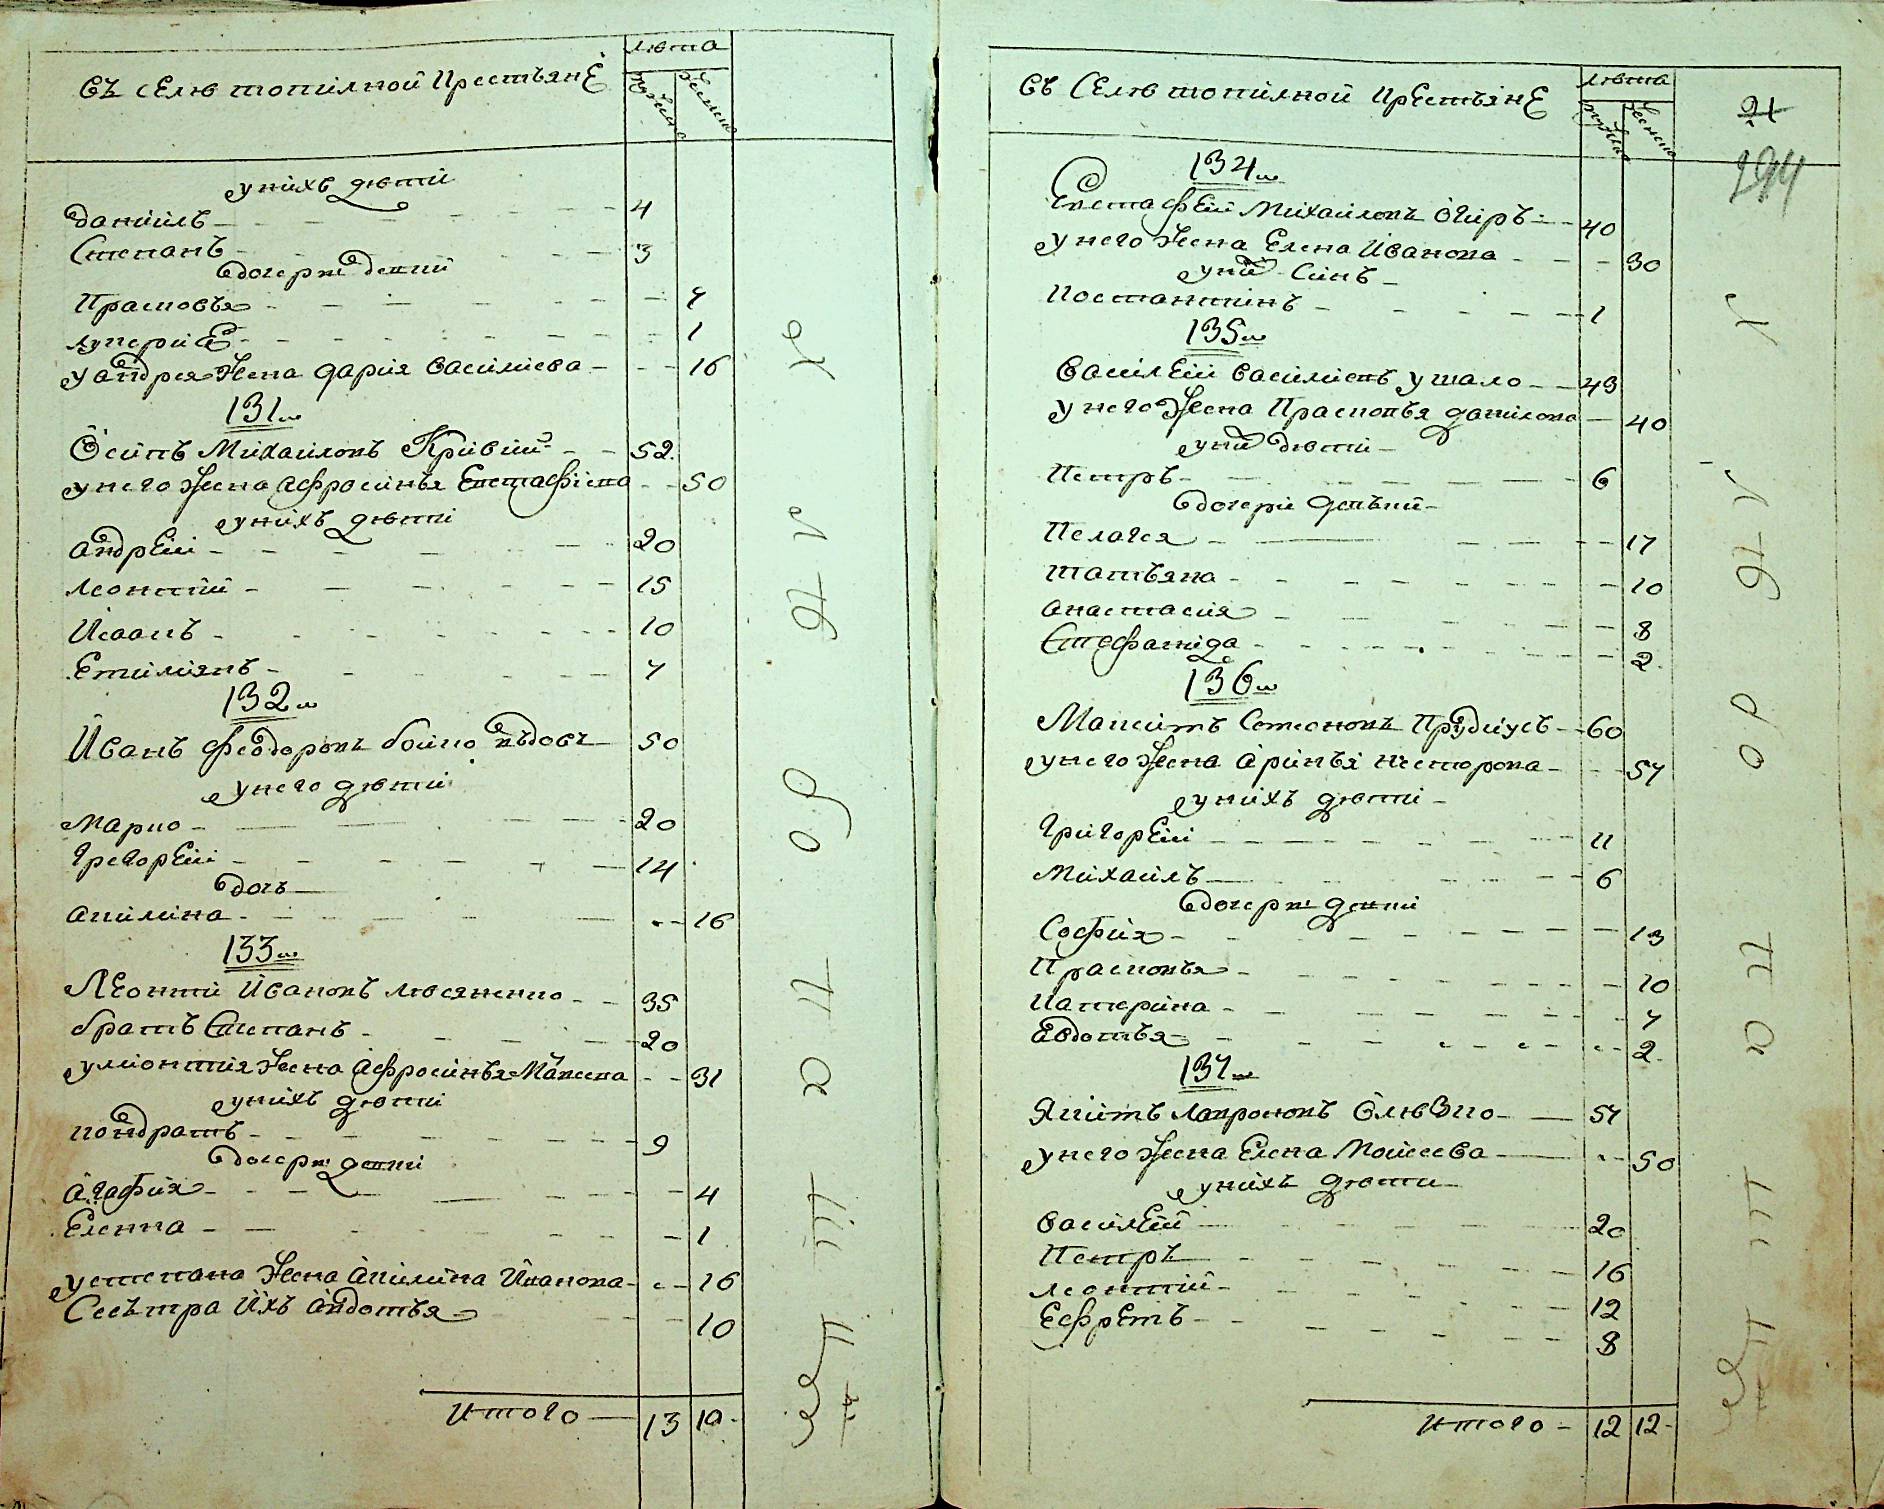 въ селѣ топилной крестьянѣ
лѣта
мужска
женска
у нихъ дѣти
даниилъ 4
Степанъ 3
дочери девки
Прасковья 7
лукериѣ 1
у андрея жена дария василиева 16
131
Осипъ Михаиловъ Кривий 52
у него жена афросинья Евстафиева 50
у нихъ дѣти
андрѣй 20
леонтий 15
Исаакъ 10
Емилиянъ 7
132
Иванъ феодоровъ бойко вдовъ 50
у него дѣти
Марко 20
григорѣй 14
дочь
акилина 16
133
Леонтий Ивановъ лисяненко 35
братъ Степанъ 20
у лионтия жена афросинья Максева 31
у нихъ дѣти
кондратъ 9
дочери девки
агафия 4
Еленна 1
у степана жена акилина Иванова 16
Сесътра ихъ авдотья 10
итого 13 10
въ Селѣ топилной крестьянѣ
лѣта
мужска
женска
21
294
134
Евстафѣй Михаиловъ Огиръ 40
у него жена Елена Иванова 30
у ний синъ
костантинъ 1
135
василѣй василиевъ ушало 43
у него жена Прасковья данилова 40
у ний дѣти
Петръ 6
дочери девъки
Пелагея 17
татьяна 10
анастасия 8
Стефанида 2
136
Максимъ Семеновъ Прудиусъ 60
у него жена аринья несторова 57
у нихъ дѣти
григорѣй 11
михаилъ 6
дочери девки
София 13
Прасковья 10
катерина 7
Евдотья 2
137
Якимъ лавроновъ Олѣзко 57
у него жена Елена Моисеева 50
у нихъ дѣти
василѣй 20
Петръ 16
леонтий 12
Ефремъ 8
итого 12 12